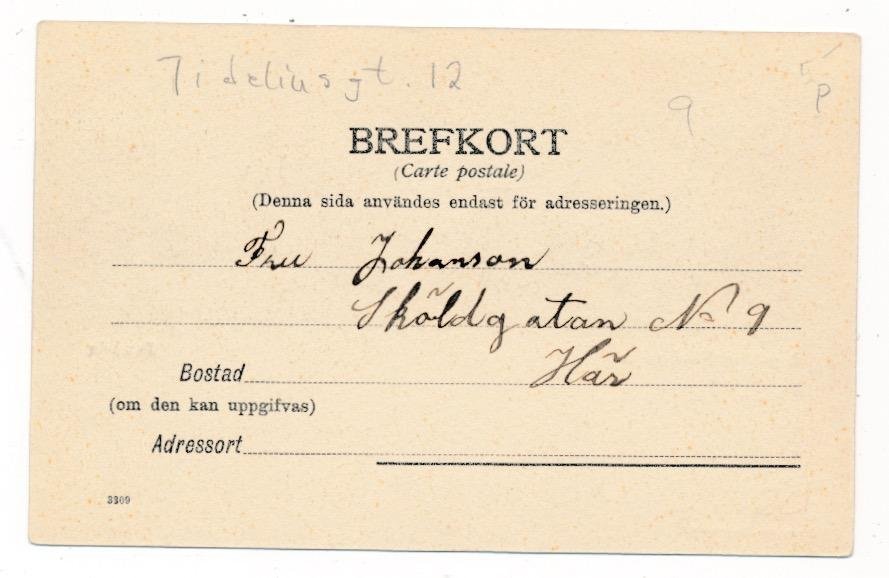 Tideliusgt. 12
9 P
BREFKORT
(Carte postale)
(Denna sida användes endast för adresseringen.)
Fru Johanson
Sköldgatan No 9
Här
Bostad
(om den kan uppgifvas)
Adressort
3309